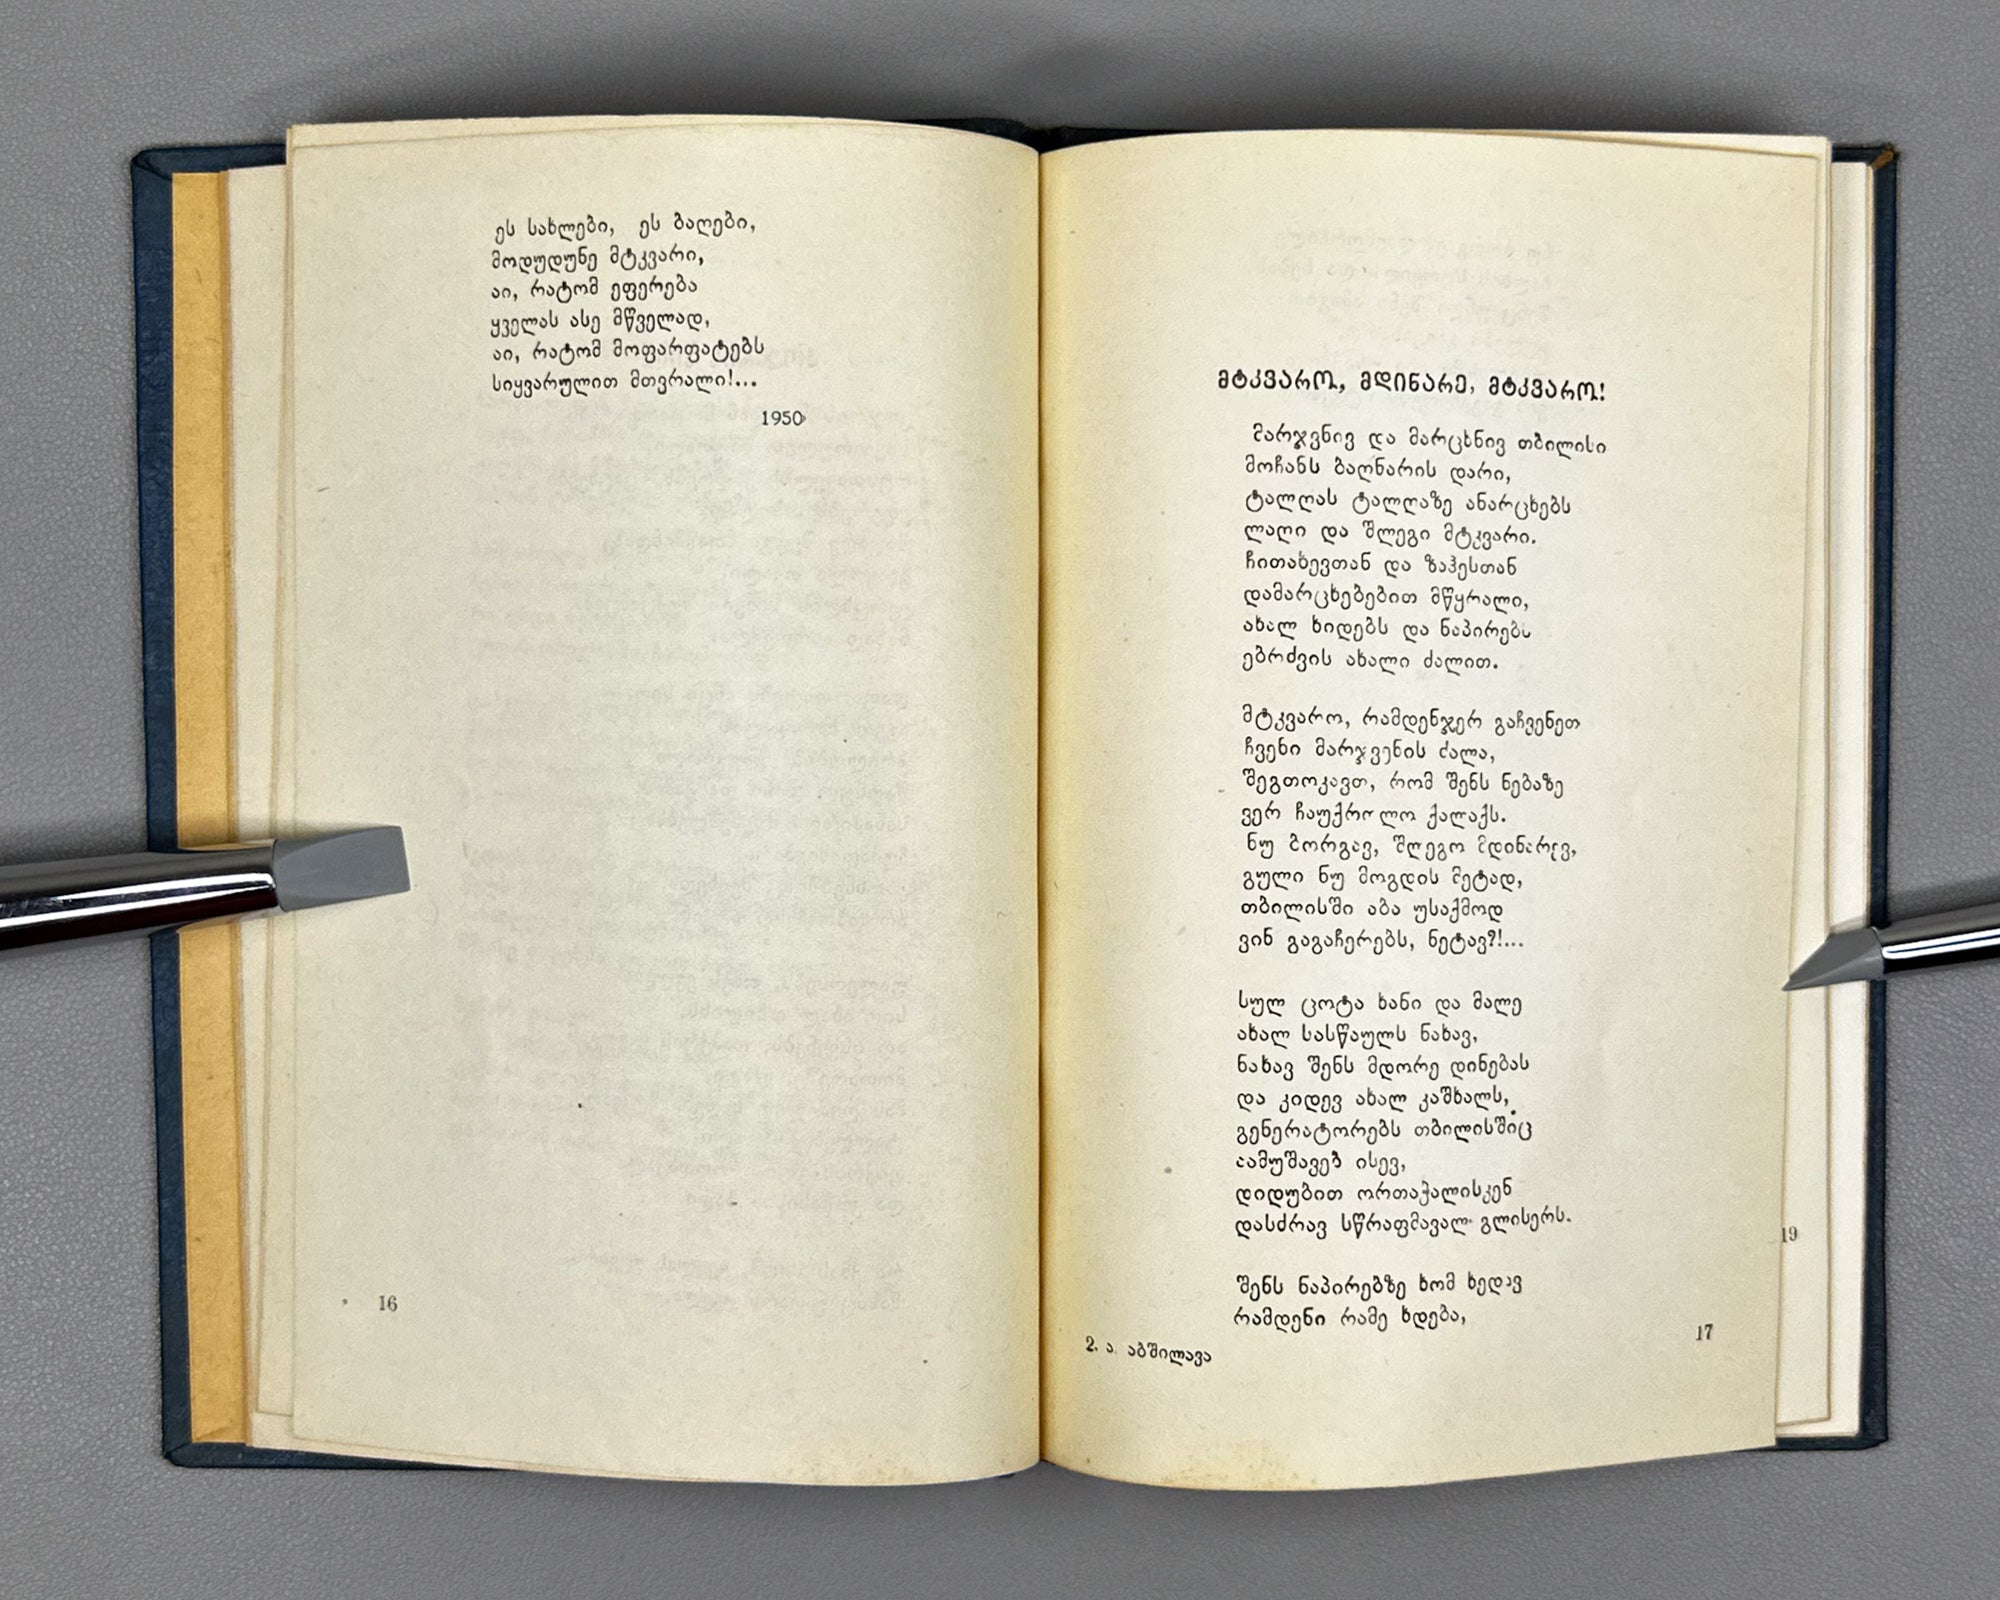 ეს სახლები, ეს ბაღები,
მოდუდუნე მტკვარი,
აი, რატომ ეფერება
ყველას ასე მწველად,
აი, რატომ მოფარფატებს
სიყვარულით მთვრალი!...
1950
16
მტკვარო, მდინარე, მტკვარო!
მარჯვნივ და მარცხნივ თბილისი
მოჩანს ბაღნარის დარი,
ტალღას ტალღაზე ანარცხებს
ლაღი და შლეგი მტკვარი.
ჩითახევთან და ზაჰესთან
დამარცხებებით მწყრალი,
ახალ ხიდებს და ნაპირებს
ებრძვის ახალი ძალით.
მტკვარო, რამდენჯერ გაჩვენეთ
ჩვენი მარჯვენის ძალა,
შეგთოკავთ, რომ შენს ნებაზე
ვერ ჩაუქროლო ქალაქს.
ნუ ბორგავ, შლეგო მდინარევ,
გული ნუ მოგდის მეტად,
თბილისში აბა უსაქმოდ
ვინ გაგაჩერებს, ნეტავ?!...
სულ ცოტა ხანი და მალე
ახალ სასწაულს ნახავ,
ნახავ შენს მდორე დინებას
და კიდევ ახალ კაშხალს,
გენერატორებს თბილისშიც
აამუშავებ ისევ,
დიდუბით ორთაჭალისკენ
დასძრავ სწრაფმავალ გლისერს.
შენს ნაპირებზე ხომ ხედავ
რამდენი რამე ხდება,
2. ა. აბშილავა
17
19